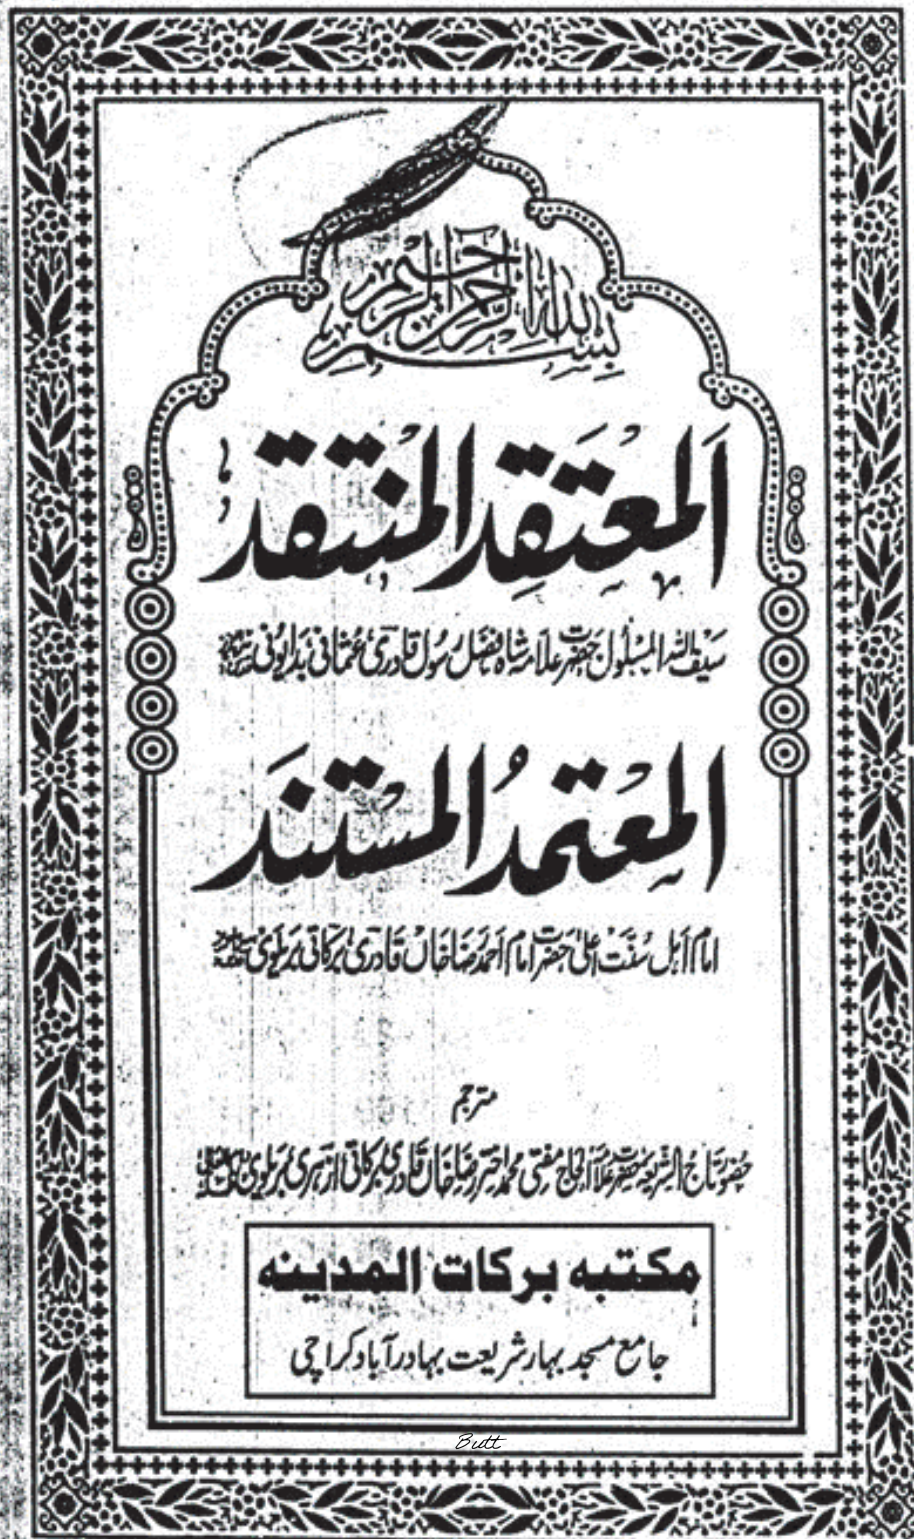 بسم الله الرحمن الرحيم
المعتقد المنتقد
سیف اللہ المسلول حضرت علامہ شاہ فضل رسول قادری عثمانی بدایونی
المعتمد المستند
امام اہل سنت اعلیٰ حضرت امام احمد رضا خاں قادری برکاتی بریلوی
مترجم
حضور تاج الشریعہ حضرت علامہ الحاج مفتی محمد اختر رضا خاں قادری برکاتی ازہری بریلوی
مکتبہ برکات المدینہ
جامع مسجد بہار شریعت بہادر آباد کراچی
Butt